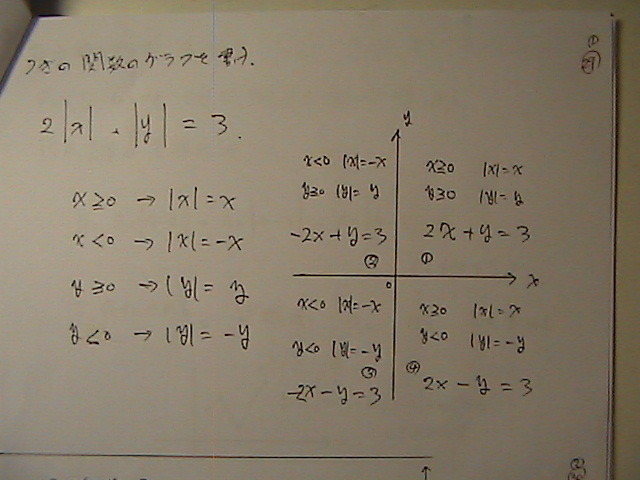 ①
つぎの関数のグラフを書け.
2|x| + |y| = 3.
x≧0 → |x| = x
x<0 → |x| = -x
y≧0 → |y| = y
y<0 → |y| = -y
y
x<0 |x|=-x
y≧0 |y|=y
-2x+y=3
②
x≧0 |x|=x
y≧0 |y|=y
2x+y=3
①
0
x
x<0 |x|=-x
y<0 |y|=-y
③
-2x-y=3
x≧0 |x|=x
y<0 |y|=-y
④
2x-y=3
②